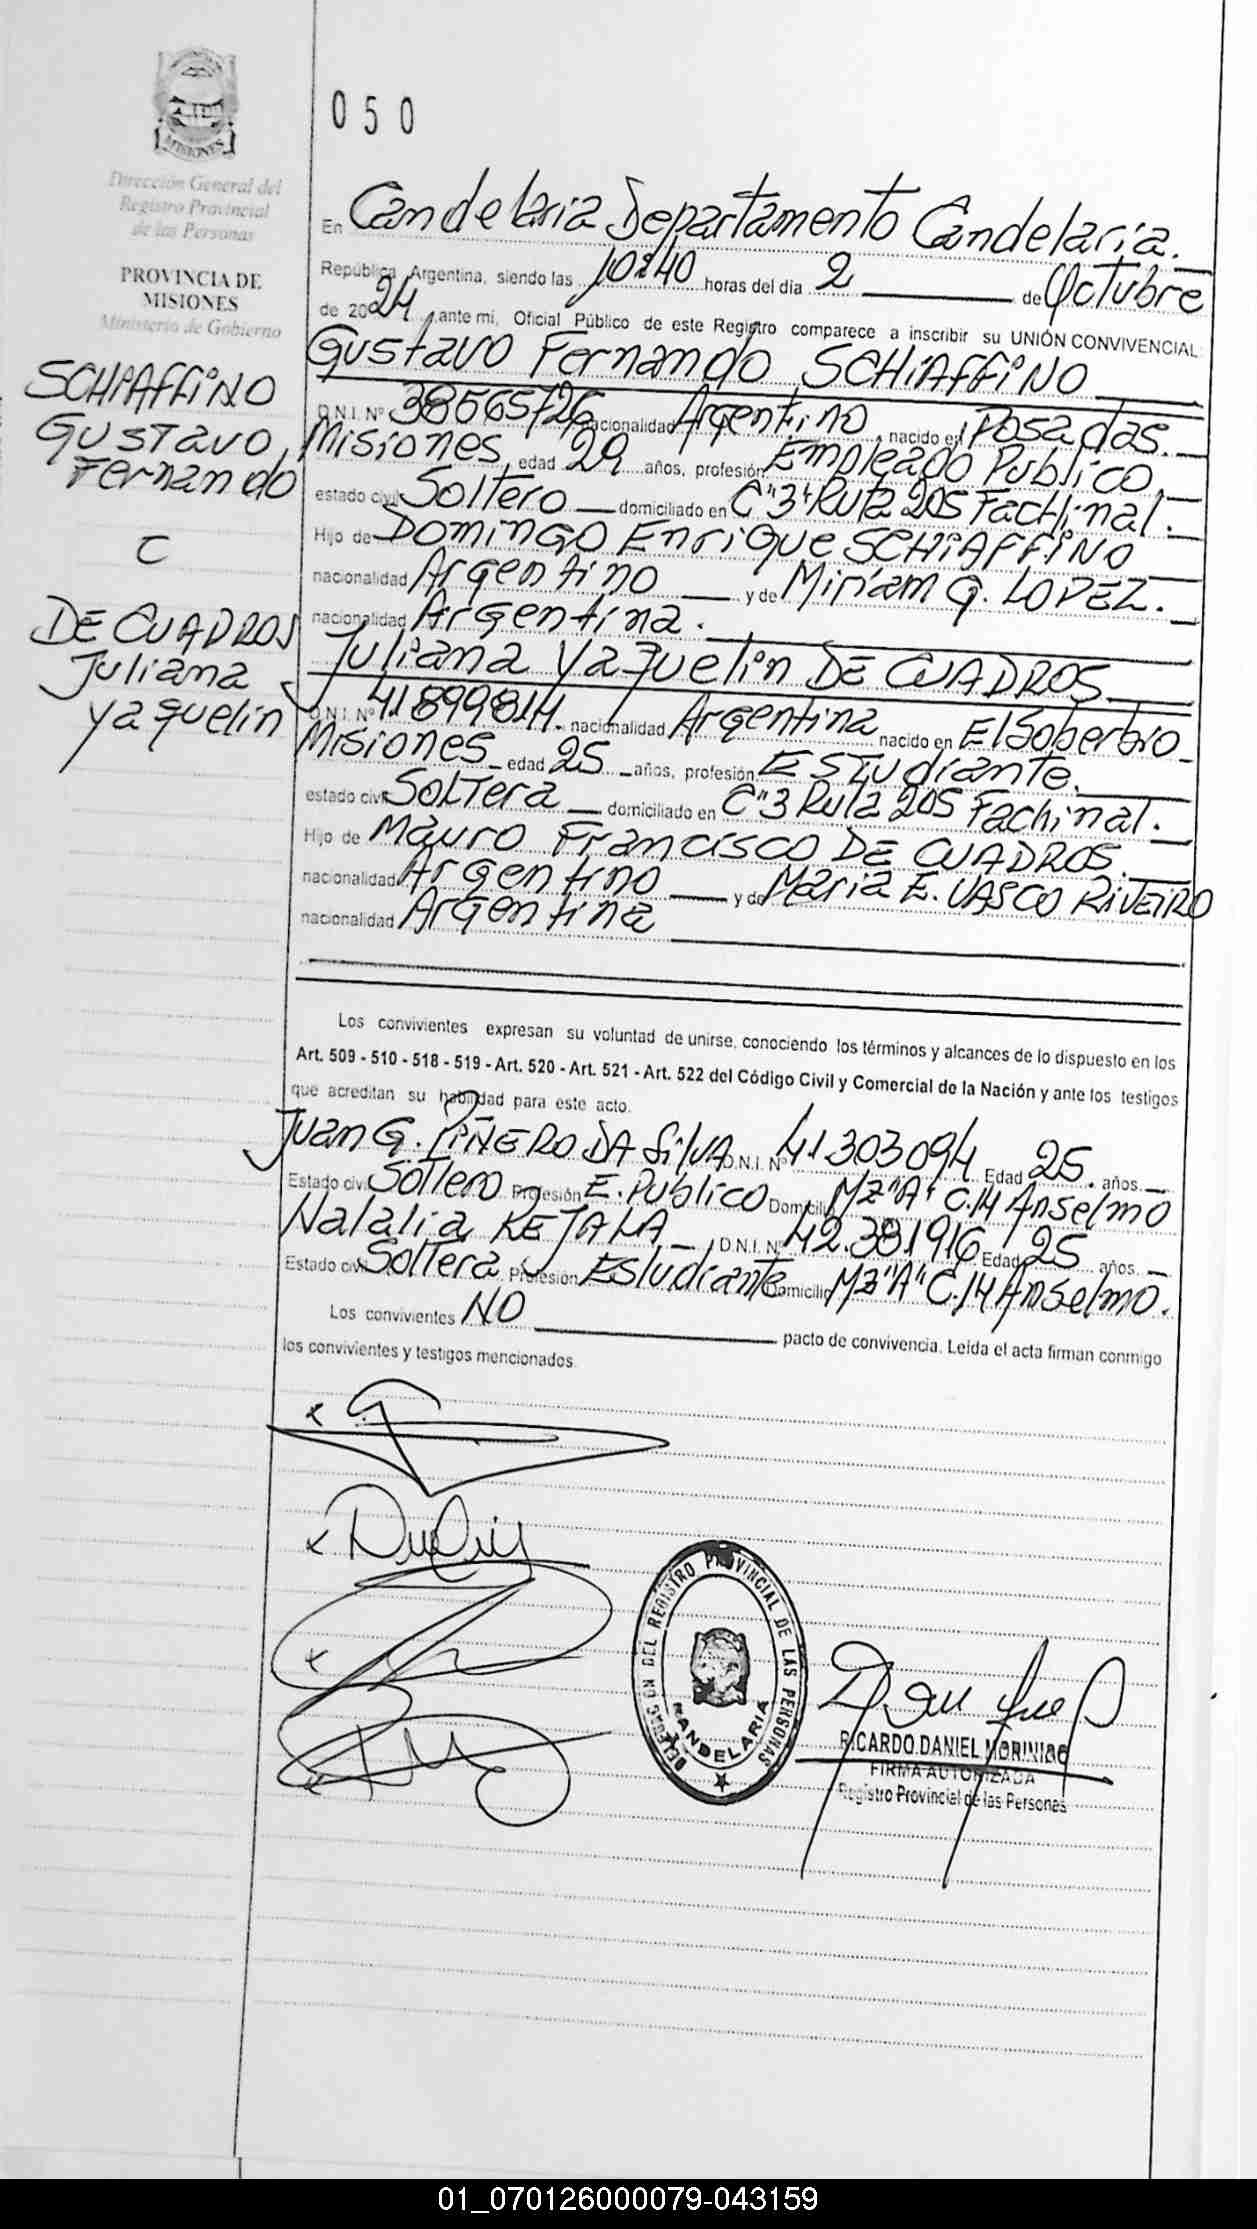 MISIONES
Dirección General del
Registro Provincial
de las Personas
PROVINCIA DE
MISIONES
Ministerio de Gobierno
SCHIAFFINO
GUSTAVO
Fernando
C
DE CUADROS
Juliana
yaquelin
050
En Candelaria Departamento Candelaria.
República Argentina, siendo las 10:40 horas del día 2 de Octubre
de 2024, ante mi, Oficial Público de este Registro comparece a inscribir su UNIÓN CONVIVENCIAL:
Gustavo Fernando SCHIAFFINO
D.N.I. Nº 38565726 nacionalidad Argentino, nacido en Posadas.
Misiones, edad 29 años, profesión Empleado Publico,
estado civil Soltero domiciliado en Cº"3" Ruta 205 Fachinal.
Hijo de DOMINGO Enrique SCHIAFFINO
nacionalidad Argentino y de Miriam G. LOPEZ.
nacionalidad Argentina.
Juliana Yaquelin DE CUADROS
D.N.I. Nº 41899814. nacionalidad Argentina nacido en El Soberbio
Misiones edad 25 años, profesión Estudiante.
estado civil Soltera domiciliado en Cº3 Ruta 205 Fachinal.
Hijo de Mauro Francisco DE CUADROS.
nacionalidad Argentino y de Maria E. VASCO RIVEIRO
nacionalidad Argentina
Los convivientes expresan su voluntad de unirse, conociendo los términos y alcances de lo dispuesto en los
Art. 509 - 510 - 518 - 519 - Art. 520 - Art. 521 - Art. 522 del Código Civil y Comercial de la Nación y ante los testigos
que acreditan su habilidad para este acto.
Juan G. PIÑERO DA SILVA D.N.I. Nº 41303094 Edad 25. años
Estado civil Soltero Profesión E. Publico Domicilio MZ"A" C.14 Anselmo
Natalia D.N.I. Nº 42.381916 Edad 25 años
Estado civil Soltera Profesión Estudiante Domicilio MZ"A" C.14 Anselmo.
Los convivientes NO pacto de convivencia. Leída el acta firman conmigo
los convivientes y testigos mencionados.
DELEGACIÓN DEL REGISTRO PROVINCIAL DE LAS PERSONAS
CANDELARIA
RICARDO DANIEL
FIRMA AUTORIZADA
Registro Provincial de las Personas
01_070126000079-043159